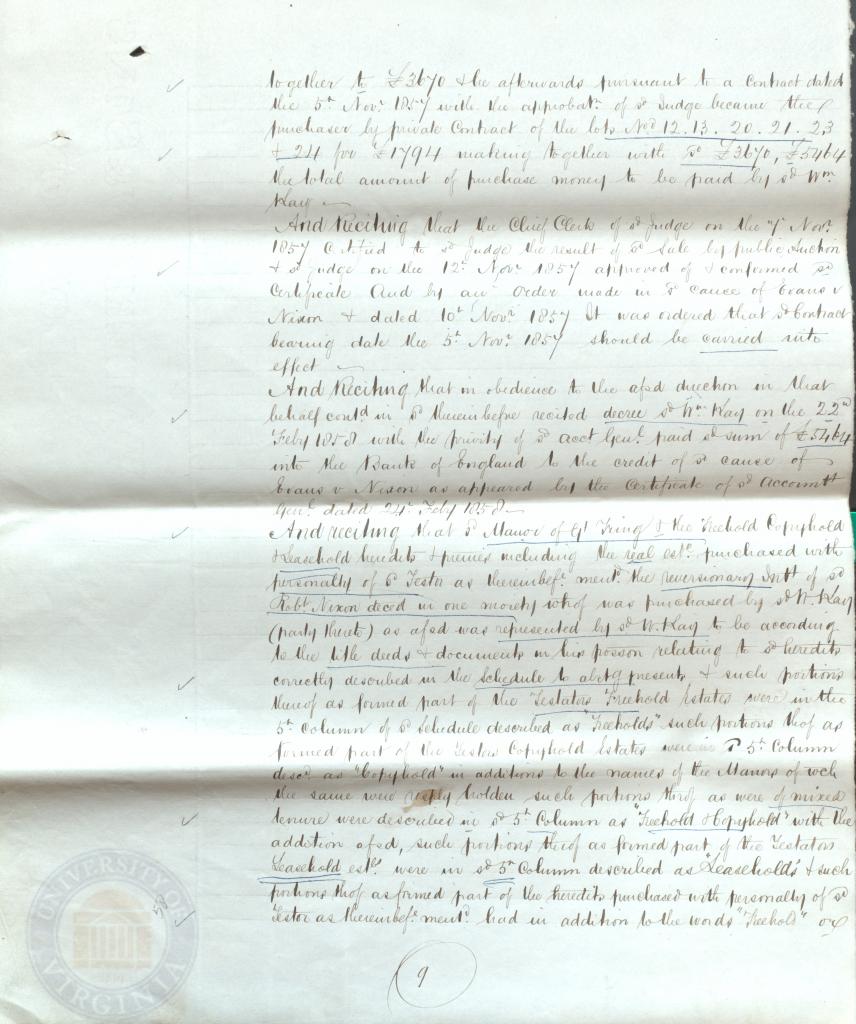 together to £3670 & he afterwards pursuant to a Contract dated
the 5th Novr. 1857 with the approbatn. of sd Judge became the
purchaser by private Contract of the lots Nos 12. 13. 20. 21. 23
& 24 for £1794 making together with sd £3670, £5464
the total amount of purchase money to be paid by sd Wm
Kay
And Reciting that the Chief Clerk of sd Judge on the 7 Novr.
1857 Certified to sd Judge the result of sd Sale by public Auction
& sd Judge on the 12th Novr 1857 approved of & confirmed sd
Certificate And by an Order made in sd cause of Evans v
Nixon & dated 10th Novr. 1857 It was ordered that sd Contract
bearing date the 5th Novr. 1857 should be carried into
effect
And Reciting that in obedience to the afsd direction in that
behalf contd in sd thereinbefre recited decree sd Wm Kay on the 22nd
Feby 1858 with the privity of sd acct Genl. paid sd sum of £5464
into the Bank of England to the credit of sd cause of
Evans v Nixon as appeared by the Certificate of sd Accountt
Genl. dated 24th Feby 1858
And reciting that sd Manor of Gt Tring & the Freehold Copyhold
& Leasehold heredits & premes including the real este. purchased with
personalty of sd Testor as thereinbefe. mentd. the reversionary Intt of sd
Robt Nixon deced in one moiety whof was purchased by sd W. Kay
(party thereto) as afsd was represented by sd W. Kay to be according
to the title deeds & documents in his posson relating to sd heredits
correctly described in the Schedule to abstg presents & such portions
thereof as formed part of the Testators Freehold Estates were in the
5th Column of sd Schedule described as "Freeholds" such portions thof as
formed part of the Testors Copyhold Estates were in sd 5th Column
descd. as "Copyhold" in additions to the names of the Manors of wch
the same were holden such portions thof as were of mixed
tenure were described in sd 5th Column as "Freehold & Copyhold" with the
addition afsd, such portions thof as formed part of the Testators
Leasehold este. were in sd 5th Column described as "Leaseholds" & such
portions thof as formed part of the heredits purchased with personalty of sd
Testor as thereinbefe. mentd. had in addition to the words "Freehold" or
9
UNIVERSITY OF
VIRGINIA